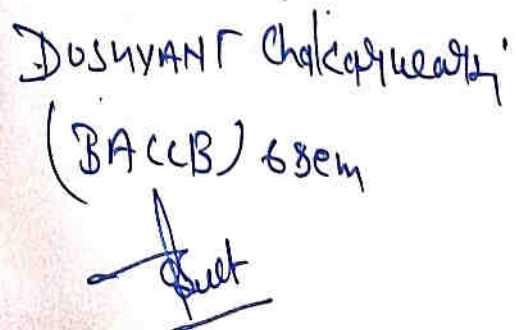 DUSHYANT Chakravarti
(BALLB) 6 sem